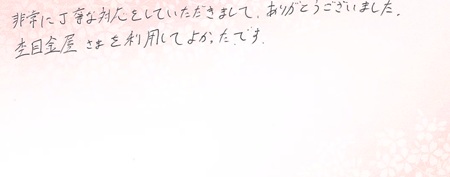 非常に丁寧な対応をしていただきまして、ありがとうございました。
杢目金屋さまを利用してよかったです。